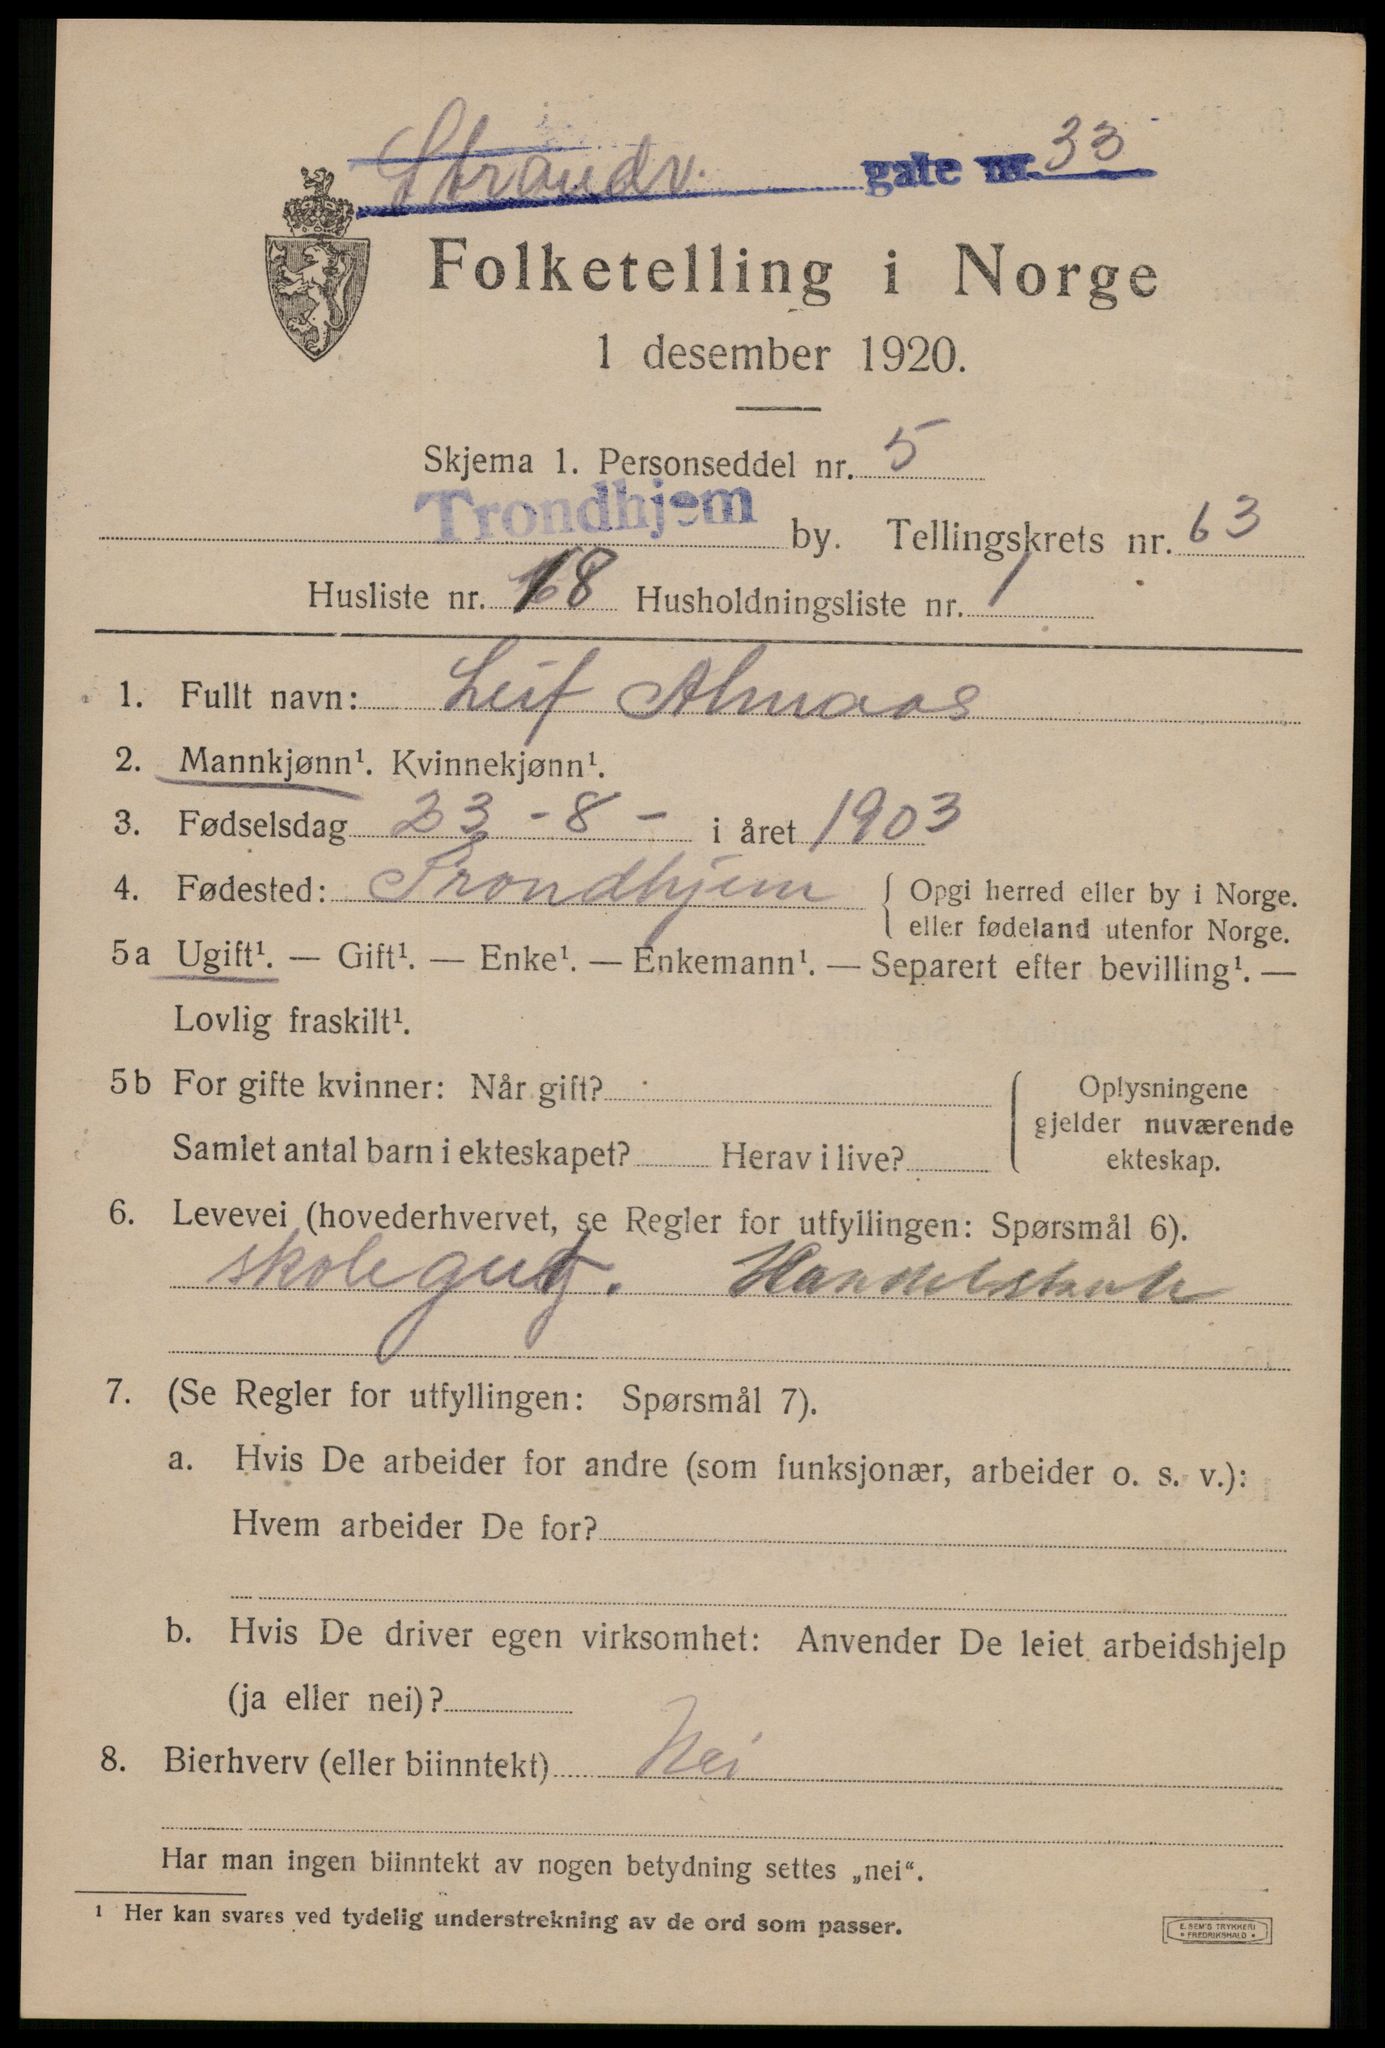 Strandv. gate nr. 33
Folketelling i Norge
1 desember 1920.
Skjema 1. Personseddel nr. 5
Trondhjem by. Tellingskrets nr. 63
Husliste nr. 18 Husholdningsliste nr. 1
1. Fullt navn: Leif Almaas
2. Mannkjønn¹. Kvinnekjønn¹.
3. Fødselsdag 23 - 8 - i året 1903
4. Fødested: Trondhjem { Opgi herred eller by i Norge.
eller fødeland utenfor Norge.
5a Ugift¹. — Gift¹. — Enke¹. — Enkemann¹. — Separert efter bevilling¹. —
Lovlig fraskilt¹.
5b For gifte kvinner: Når gift?
Samlet antal barn i ekteskapet? Herav i live?
Oplysningene
gjelder nuværende
ekteskap.
6. Levevei (hovederhvervet, se Regler for utfyllingen: Spørsmål 6).
skolegut.
7. (Se Regler for utfyllingen: Spørsmål 7).
a. Hvis De arbeider for andre (som funksjonær, arbeider o. s. v.):
Hvem arbeider De for?
b. Hvis De driver egen virksomhet: Anvender De leiet arbeidshjelp
(ja eller nei)?
8. Bierhverv (eller biinntekt) Nei
Har man ingen biinntekt av nogen betydning settes „nei“.
1 Her kan svares ved tydelig understrekning av de ord som passer.
E. SEM'S TRYKKERI
FREDRIKSHALD